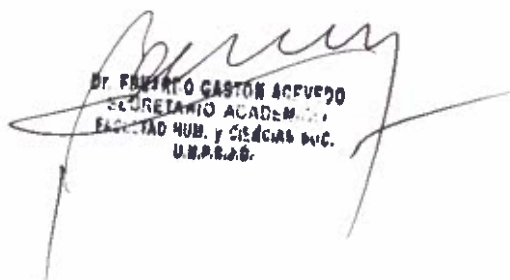 Dr. GASTON ACEVEDO
SECRETARIO ACADEM
FACULTAD HUM. y CIENCIAS SOC.
U.N.P.S.J.B.